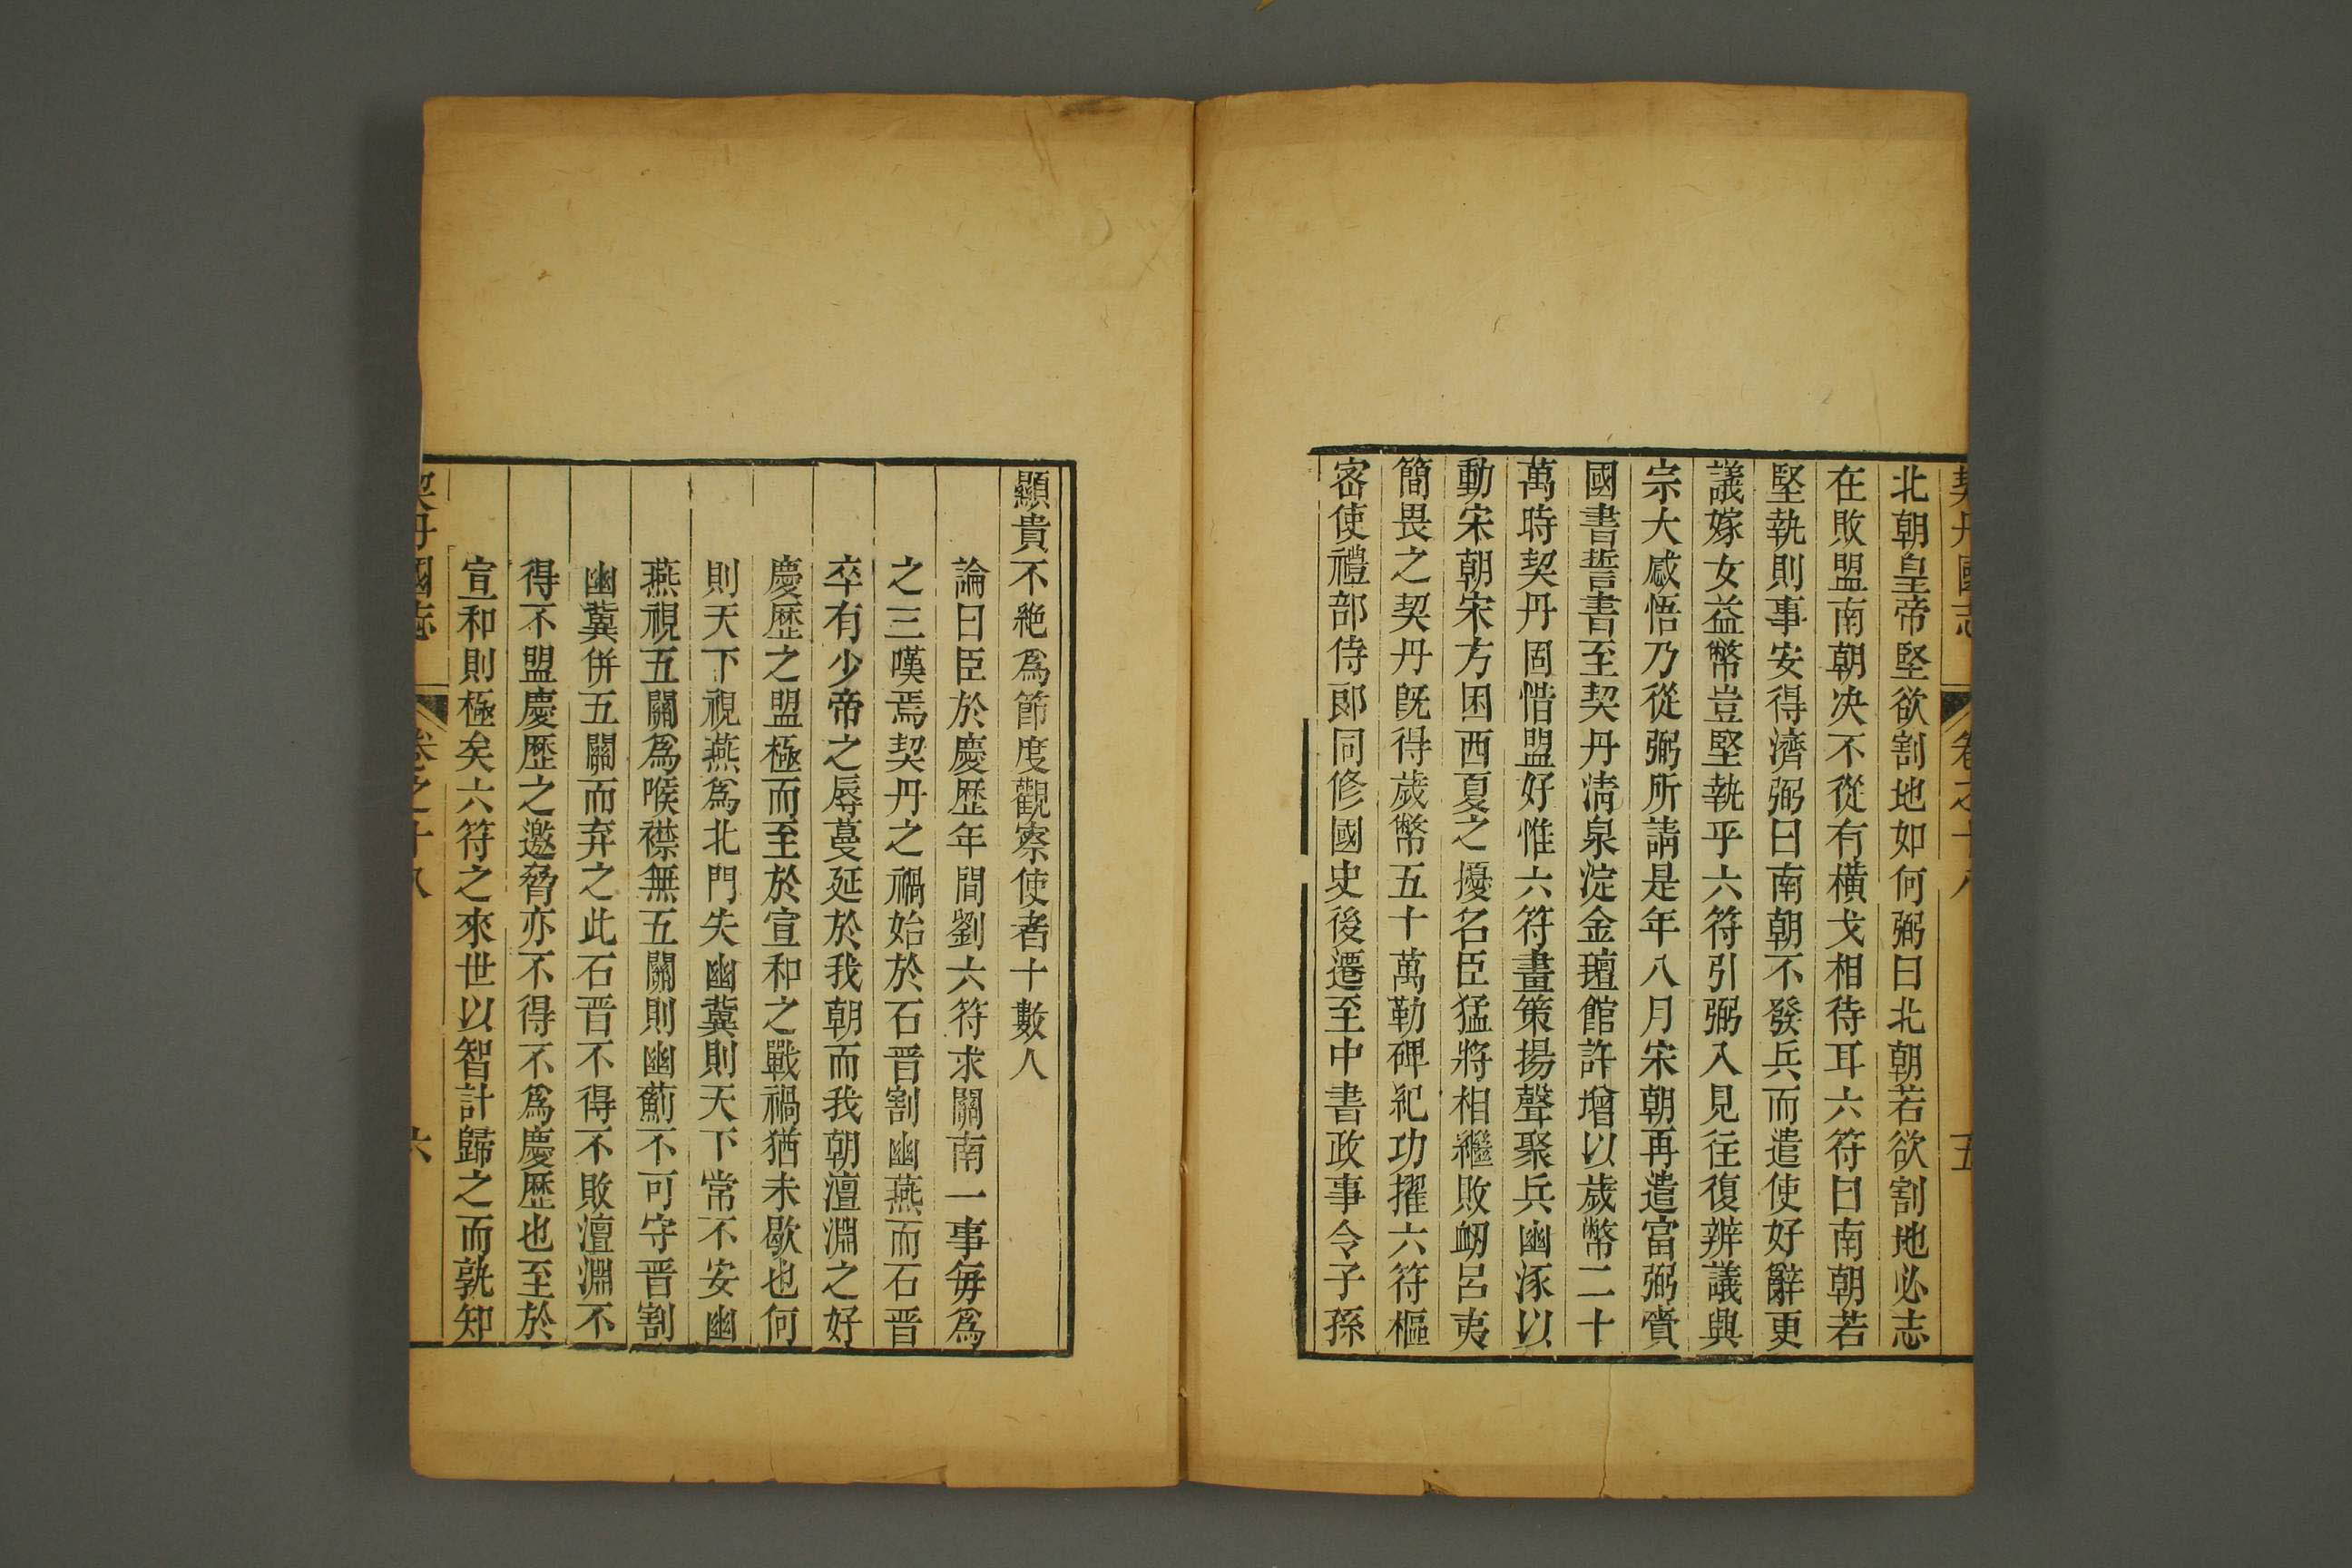 契丹國志 卷之十八 五
北朝皇帝堅欲割地如何弼曰北朝若欲割地必志
在敗盟南朝决不從有橫戈相待耳六符曰南朝若
堅執則事安得濟弼曰南朝不發兵而遣使好辭更
議嫁女益幣豈堅執乎六符引弼入見往復辨議與
宗大感悟乃從弼所請是年八月宋朝再遣富弼賫
國書誓書至契丹清泉淀金氊館許增以歲幣二十
萬時契丹固惜盟好惟六符畫策揚聲聚兵幽涿以
動宋朝宋方困西夏之擾名臣猛將相繼敗衂呂夷
簡畏之契丹旣得歲幣五十萬勒碑紀功擢六符樞
宻使禮部侍郞同修國史後遷至中書政事令子孫
顯貴不絶爲節度觀察使者十數人
論曰臣於慶歴年間劉六符求關南一事每爲
之三嘆焉契丹之禍始於石晋割幽燕而石晋
卒有少帝之辱蔓延於我朝而我朝澶淵之好
慶歴之盟極而至於宣和之戰禍猶未歇也何
則天下視燕爲北門失幽冀則天下常不安幽
燕視五關爲喉襟無五關則幽薊不可守晋割
幽冀併五關而弃之此石晋不得不敗澶淵不
得不盟慶歴之邀脅亦不得不爲慶歴也至於
宣和則極矣六符之來世以智計歸之而孰知
契丹國志 卷之十八 六